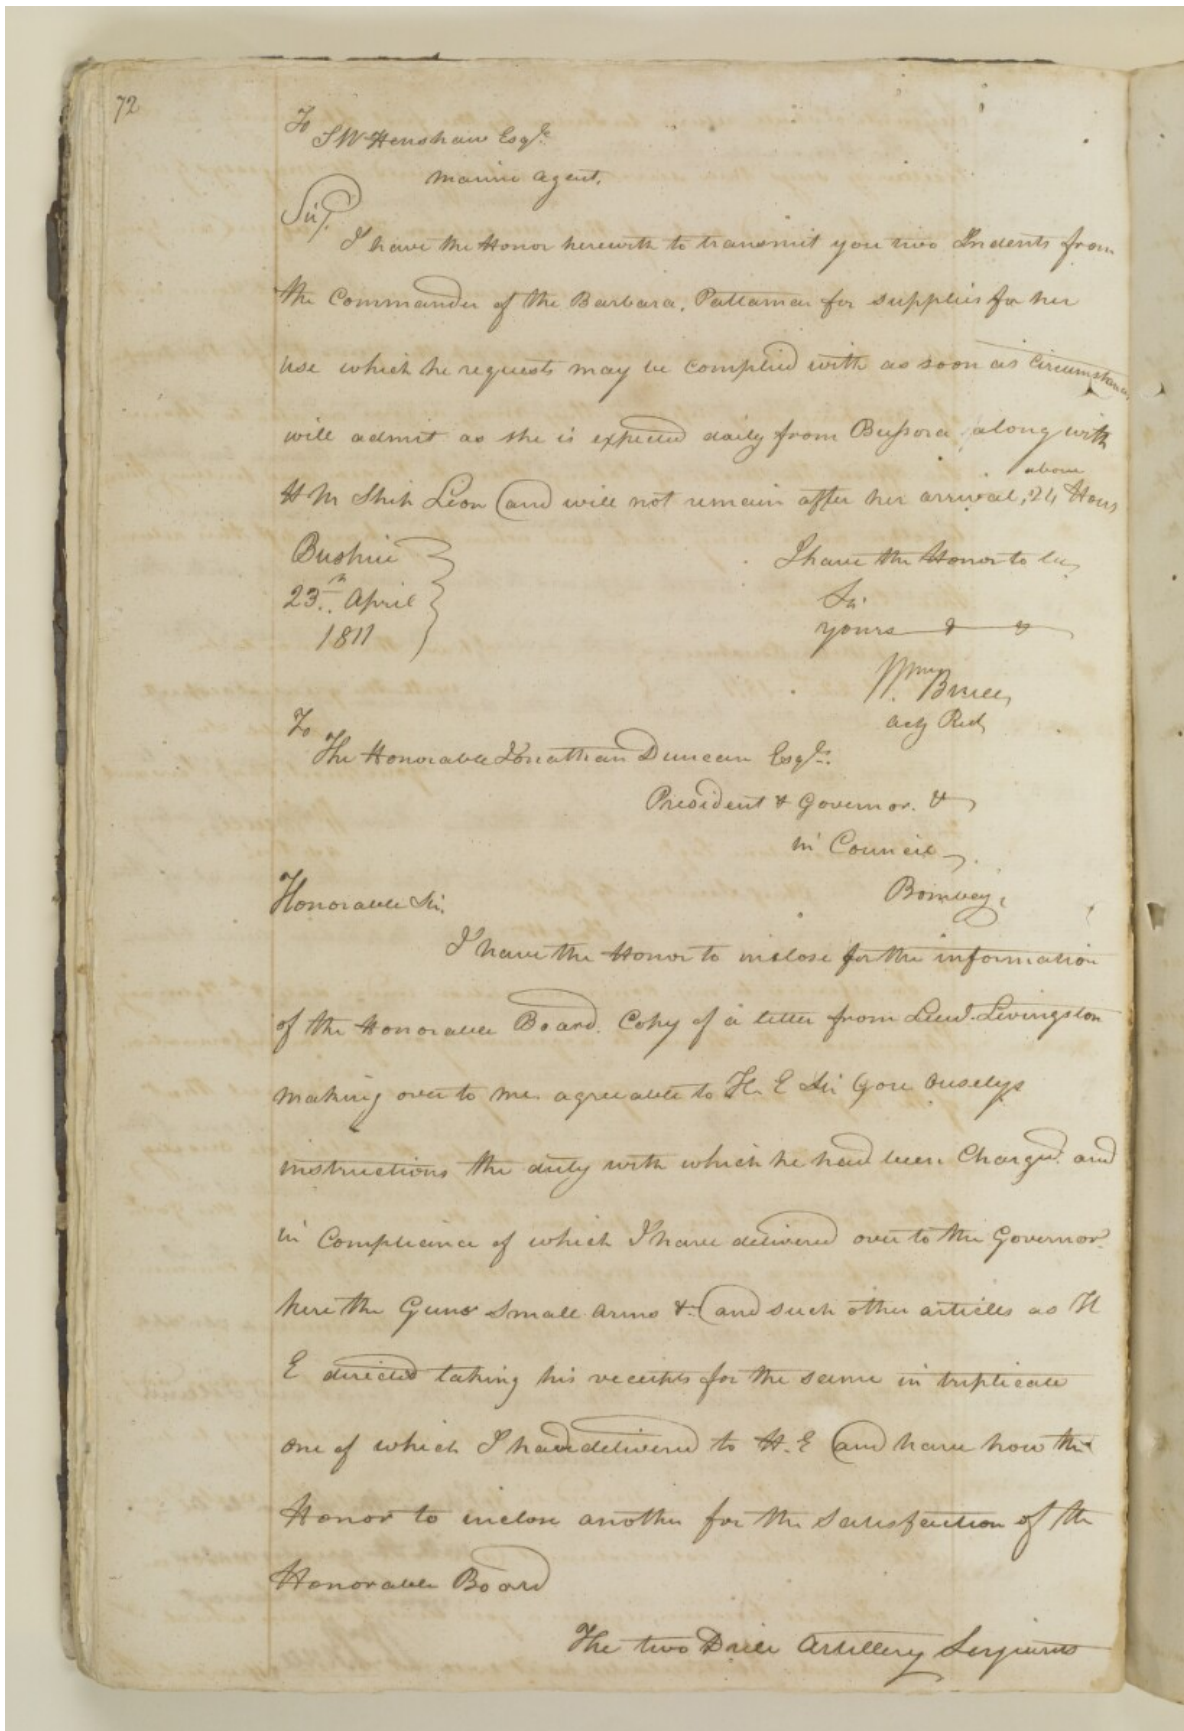 72
To
S W Henshaw Esqr.
Marine Agent.
Sir,
I have the Honor herewith to transmit you two Indents from
the Commander of the Barbara, Pattamar for supplies for her
use which he requests may be complied with as soon as Circumstances
will admit as she is expected daily from Bussora along with
above
H M Ship Lion and will not remain after her arrival, 24 Hours
Bushire
23rd. April
1811
I have the Honor to be,
Sir
yours & &
Wm. Bruce,
Actg Resd
To
The Honorable Jonathan Duncan Esqr.
President & Governor. &
in Council
Bombay,
Honorable Sir.
I have the Honor to inclose for the information
of the Honorable Board. Copy of a letter from Lieut. Livingston
making over to me agreeable to H. E Sir Gore Ouseleys
instructions the duty with which he had been Charged. and
in Compliance of which I have delivered over to the Governor.
here the Guns Small Arms &c and such other articles as H
E directed taking his receipts for the same in triplicate
one of which I have delivered to H. E and have now the
Honor to inclose another for the Satisfaction of the
Honorable Board
The two Drill Artillery Serjeants